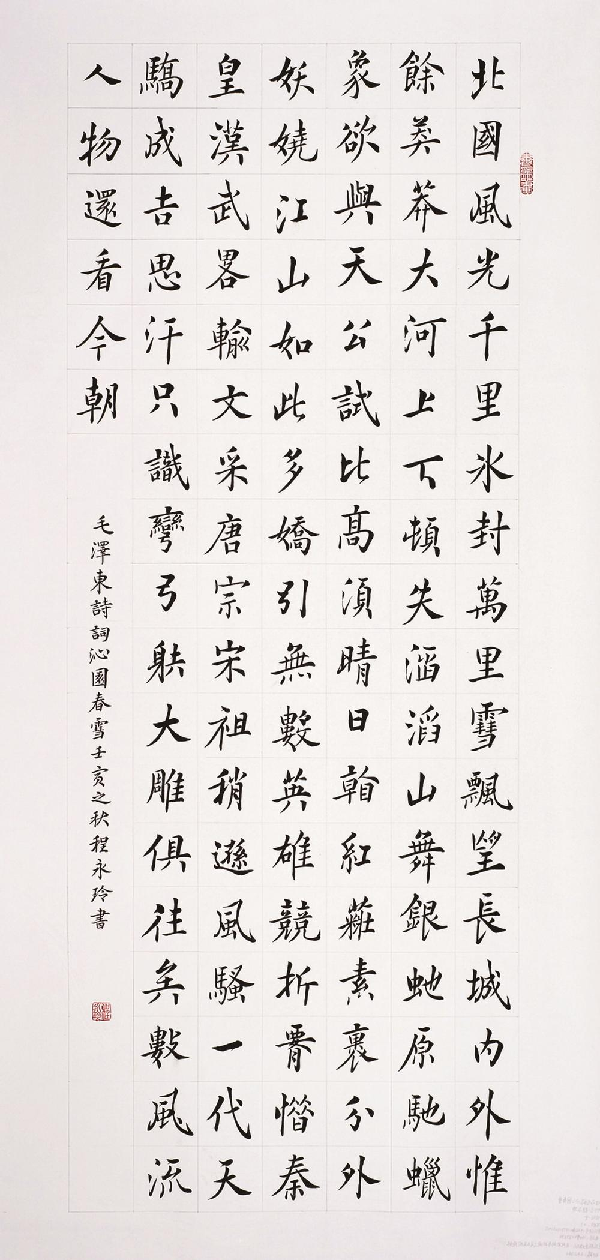 北國風光千里冰封萬里雪飄望長城內外惟
餘莽莽大河上下頓失滔滔山舞銀虵原馳蠟
象欲與天公試比高須晴日看紅素裹分外
妖嬈江山如此多嬌引無數英雄競折腰惜秦
皇漢武畧輸文采唐宗宋祖稍遜風騷一代天
驕成吉思汗只識彎弓射大雕俱往矣數風流
人物還看今朝
毛澤東詩詞沁園春雪壬寅之秋程永玲書